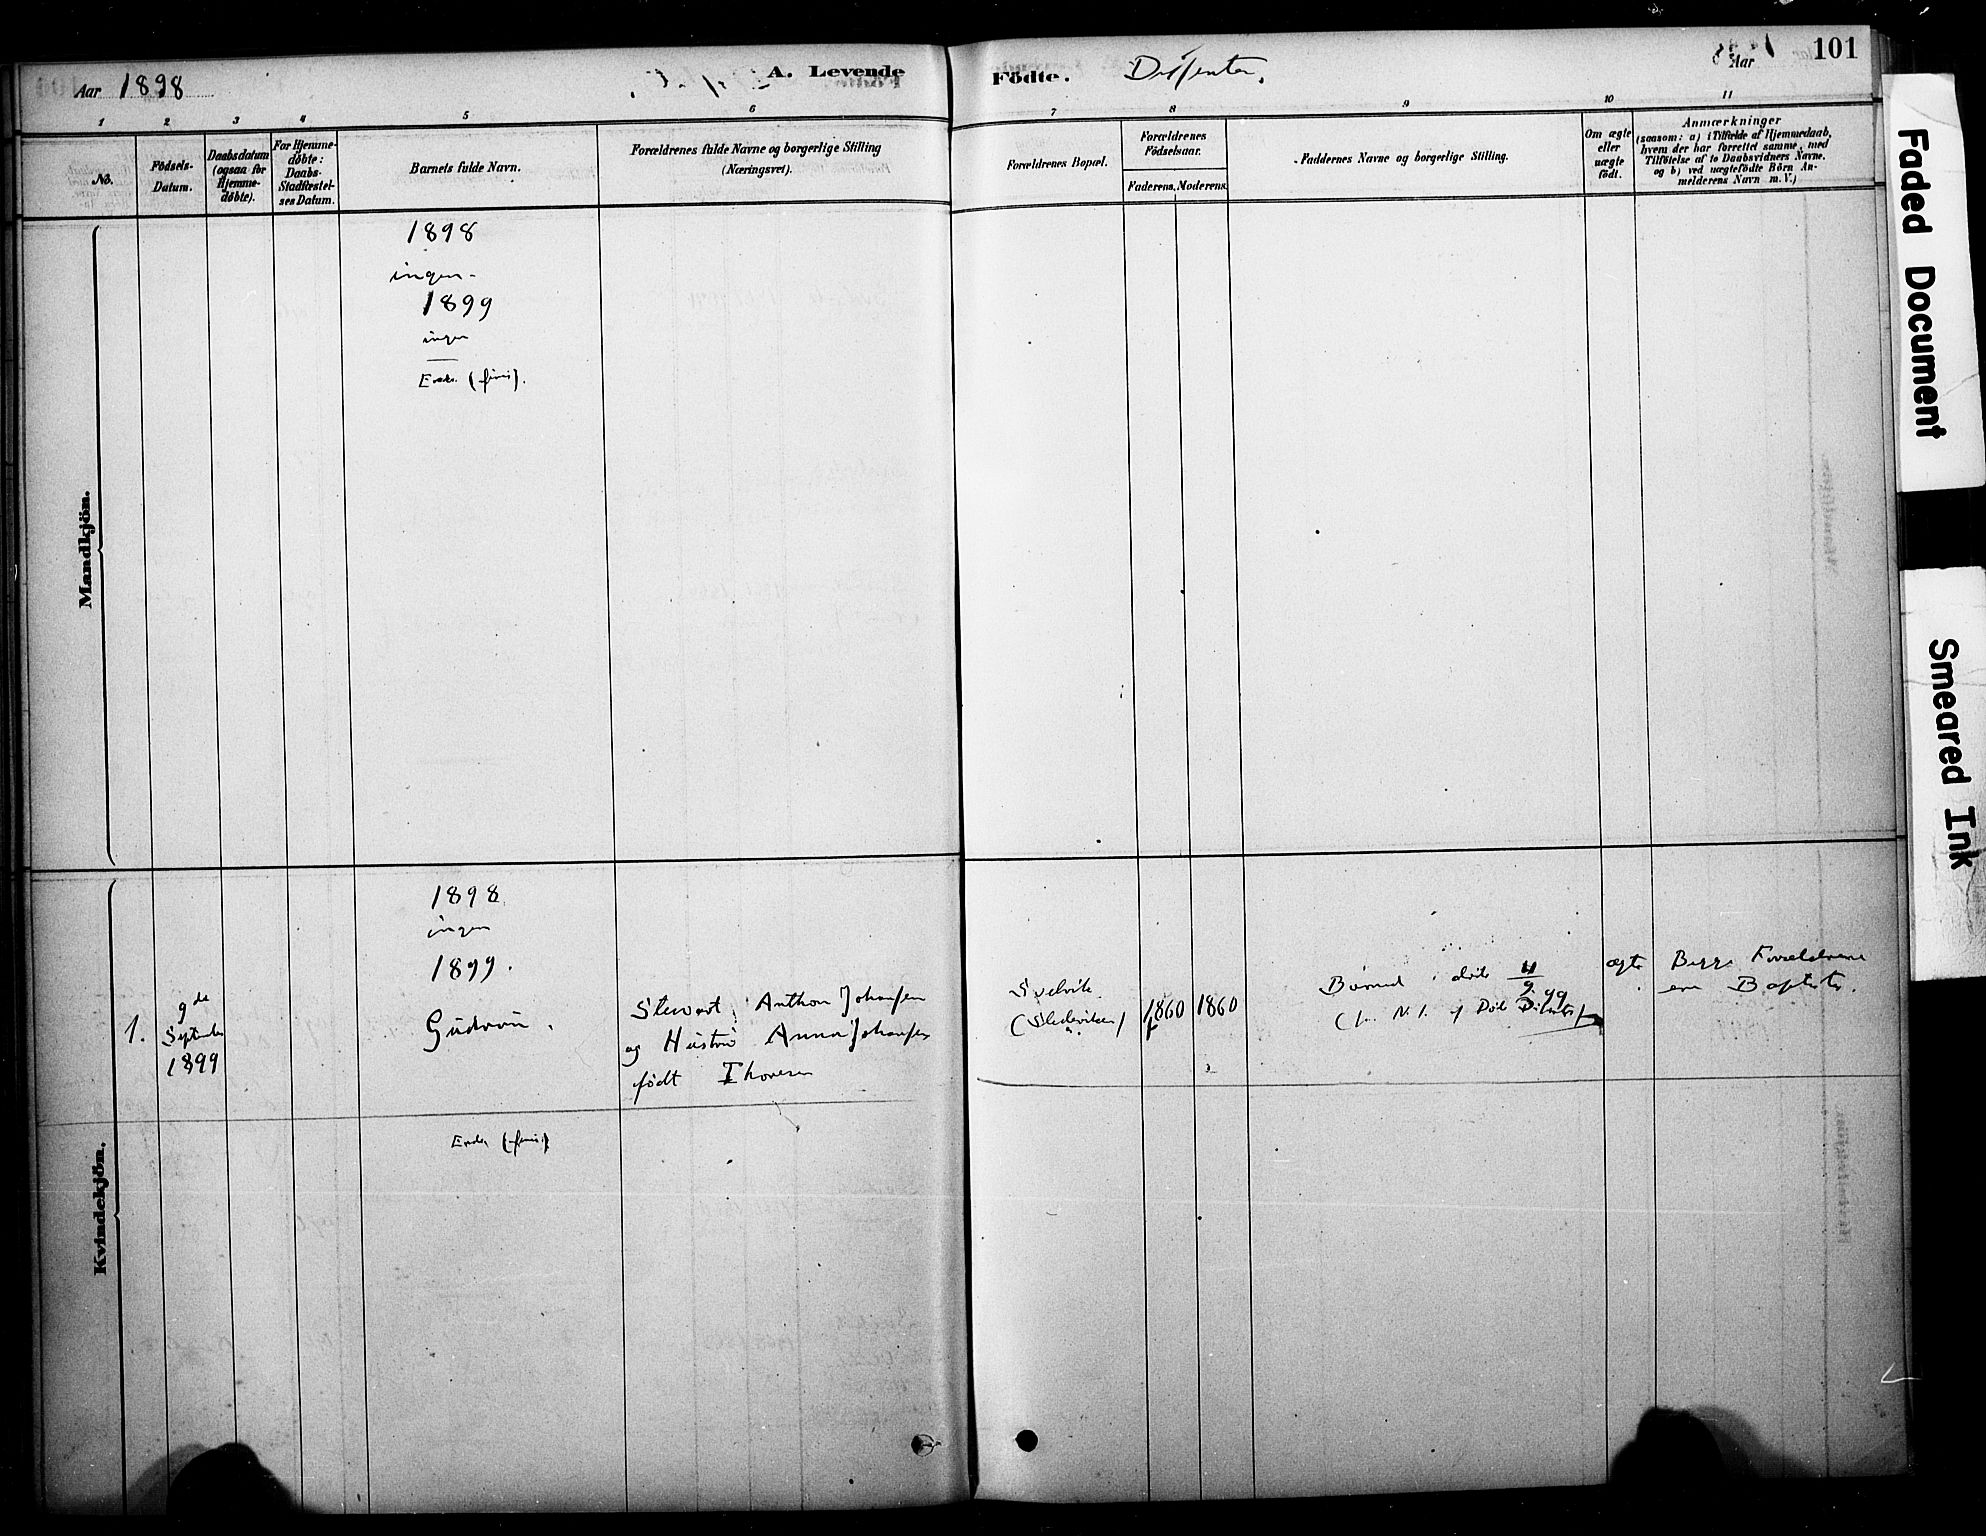 Aar 1898
A. Levende
Fødte.
Dissenter.
Aar
101
1
2
3
4
5
6
7
8
9
10
11
No.
Fødsels-
Datum.
Daabsdatum
(ogsaa for
Hjemme-
døbte).
For Hjemme-
døbte:
Daabs-
Stadfæstel-
ses Datum.
Barnets fulde Navn.
Forældrenes fulde Navne og borgerlige Stilling
(Næringsvei).
Forældrenes Bopæl.
Forældrenes
Fødselsaar.
Faderens.
Moderens.
Faddernes Navne og borgerlige Stilling.
Om ægte
eller
uægte
født.
Anmærkninger
(saasom: a) i Tilfælde af Hjemmedaab,
hvem der har forrettet samme, med
Tilføielse af to Daabsvidners Navne,
og b) ved uægtefødte Børn An-
melderens Navn m. V.)
Mandkjön.
1898
ingen
1899
ingen
(finis).
Kvindekjön.
1898
ingen
1899.
1.
9de
September
1899
Gudrun.
Stewart, Anthon Johansen
og Hustru Anna Johansen
født Thoresen
Svelvik
1860
1860
ægte
Begge Forældrene
ere Baptister.
(finis)
Faded Document
Smeared Ink